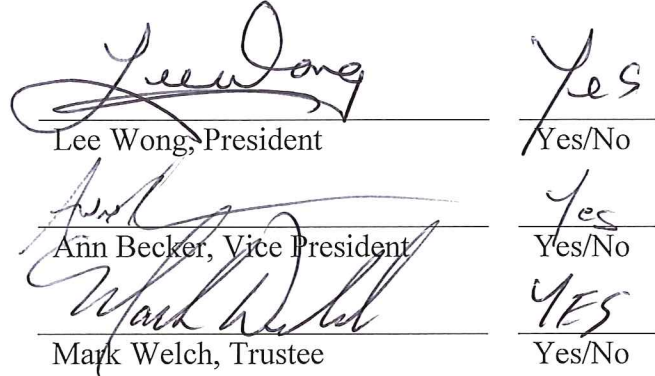 Lee Wong Yes
Lee Wong, President Yes/No
Yes
Ann Becker, Vice President Yes/No
Mark Welch YES
Mark Welch, Trustee Yes/No